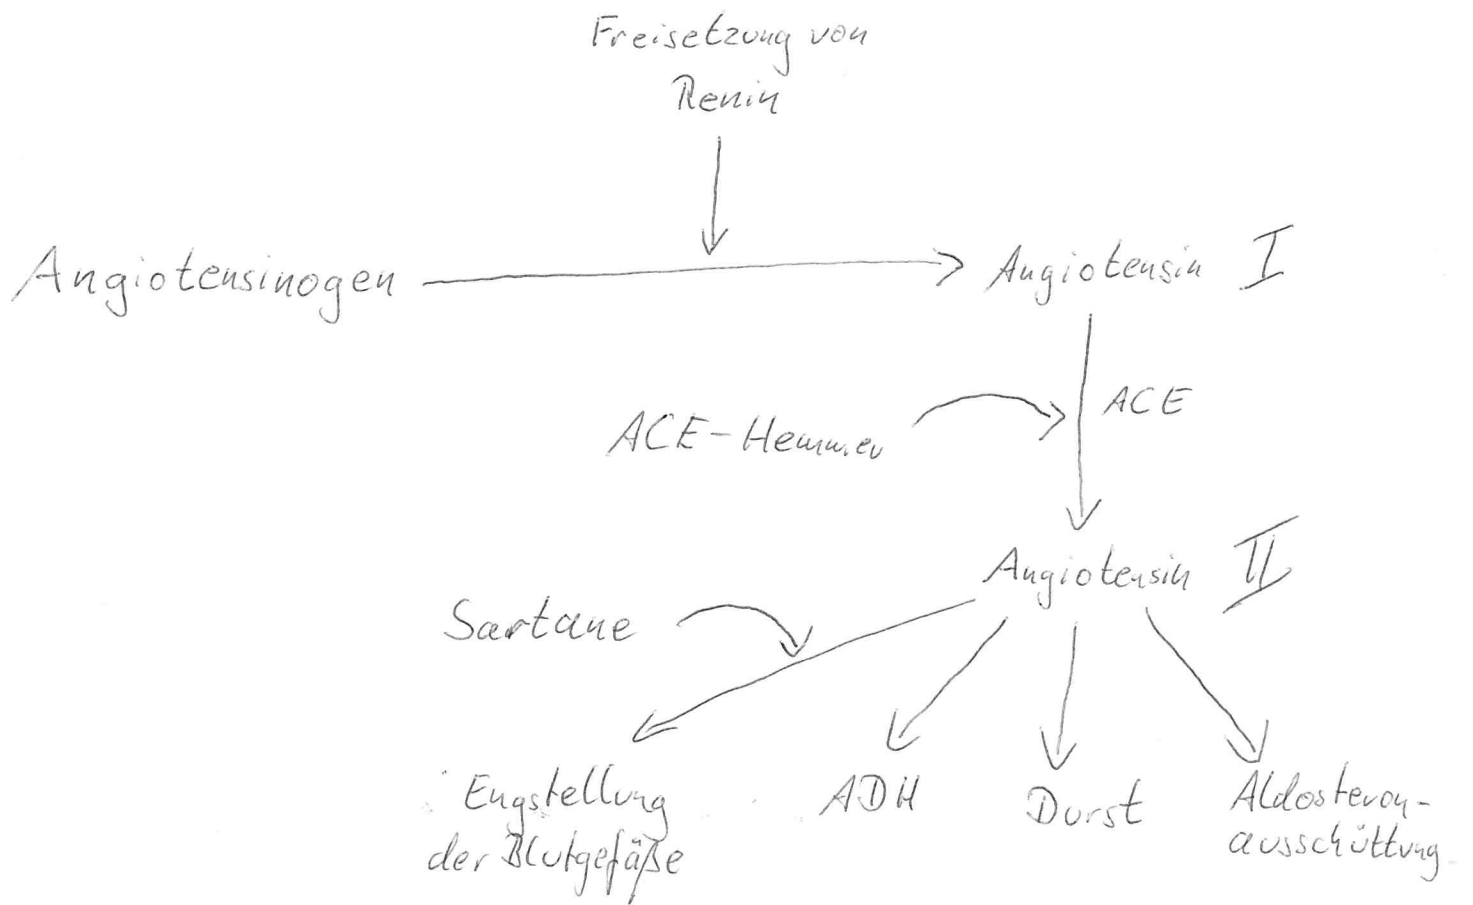 Freisetzung von
Renin
Angiotensinogen
Angiotensin I
ACE
ACE-Hemmer
Angiotensin II
Sartane
Engstellung
der Blutgefäße
ADH
Durst
Aldosteron-
ausschüttung